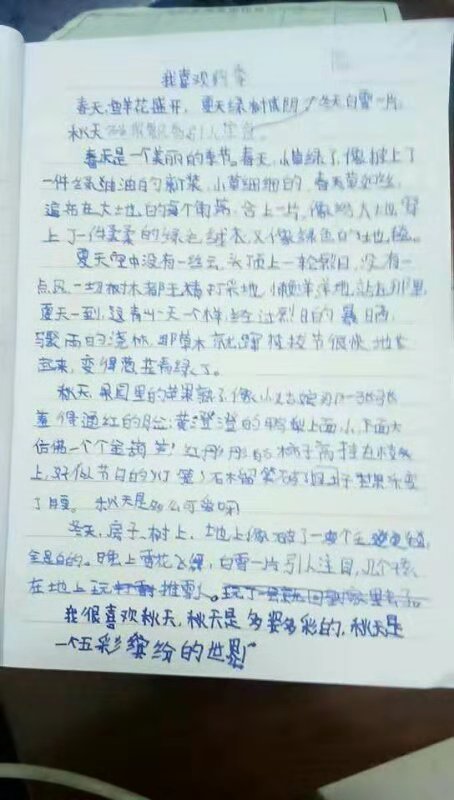 我喜欢的季
春天,鲜花盛开,夏天绿树成阴,冬天白雪一片,
秋天引人注
春天是一个美丽的季节。春天,小草绿了,像披上了
一件绿油油的新装,小草细细的,春天
遍布在大地的每个角落,合上一片,像给大地穿
上了一件柔柔的绿色绒衣,又像绿色的地
夏天空中没有一丝云,头顶上一轮烈日,没有一
点风,一切树木都无精打采地,懒洋洋地站在那里
夏天一到,一天一个样,经过烈日的暴晒
骤雨的浇林,那草木就踩枝拔节很快地
起来,变得葱茏绿了。
秋天,果园里的苹果熟了,像小姑娘一张张
羞得通红的脸;黄澄澄的鸭梨上面小,下面大
仿佛一个个金葫芦;红彤彤的柿子高挂在枝头
上,好似节日的灯笼;石榴笑破了
了腰。秋天是多么可爱啊
冬天,房子,树上,地上像
全是白的。晚上雪花飞舞,白雪一片引人注目,几个孩
在地上玩推雪人。玩了一会就回到家里去了。
我很喜欢秋天,秋天是多姿多彩的,秋天是
一个五彩缤纷的世界